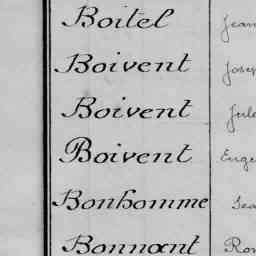 Boitel Jean
Boivent Josep
Boivent Jule
Boivent Euge
Bonhomme Jea
Bonnant Ron